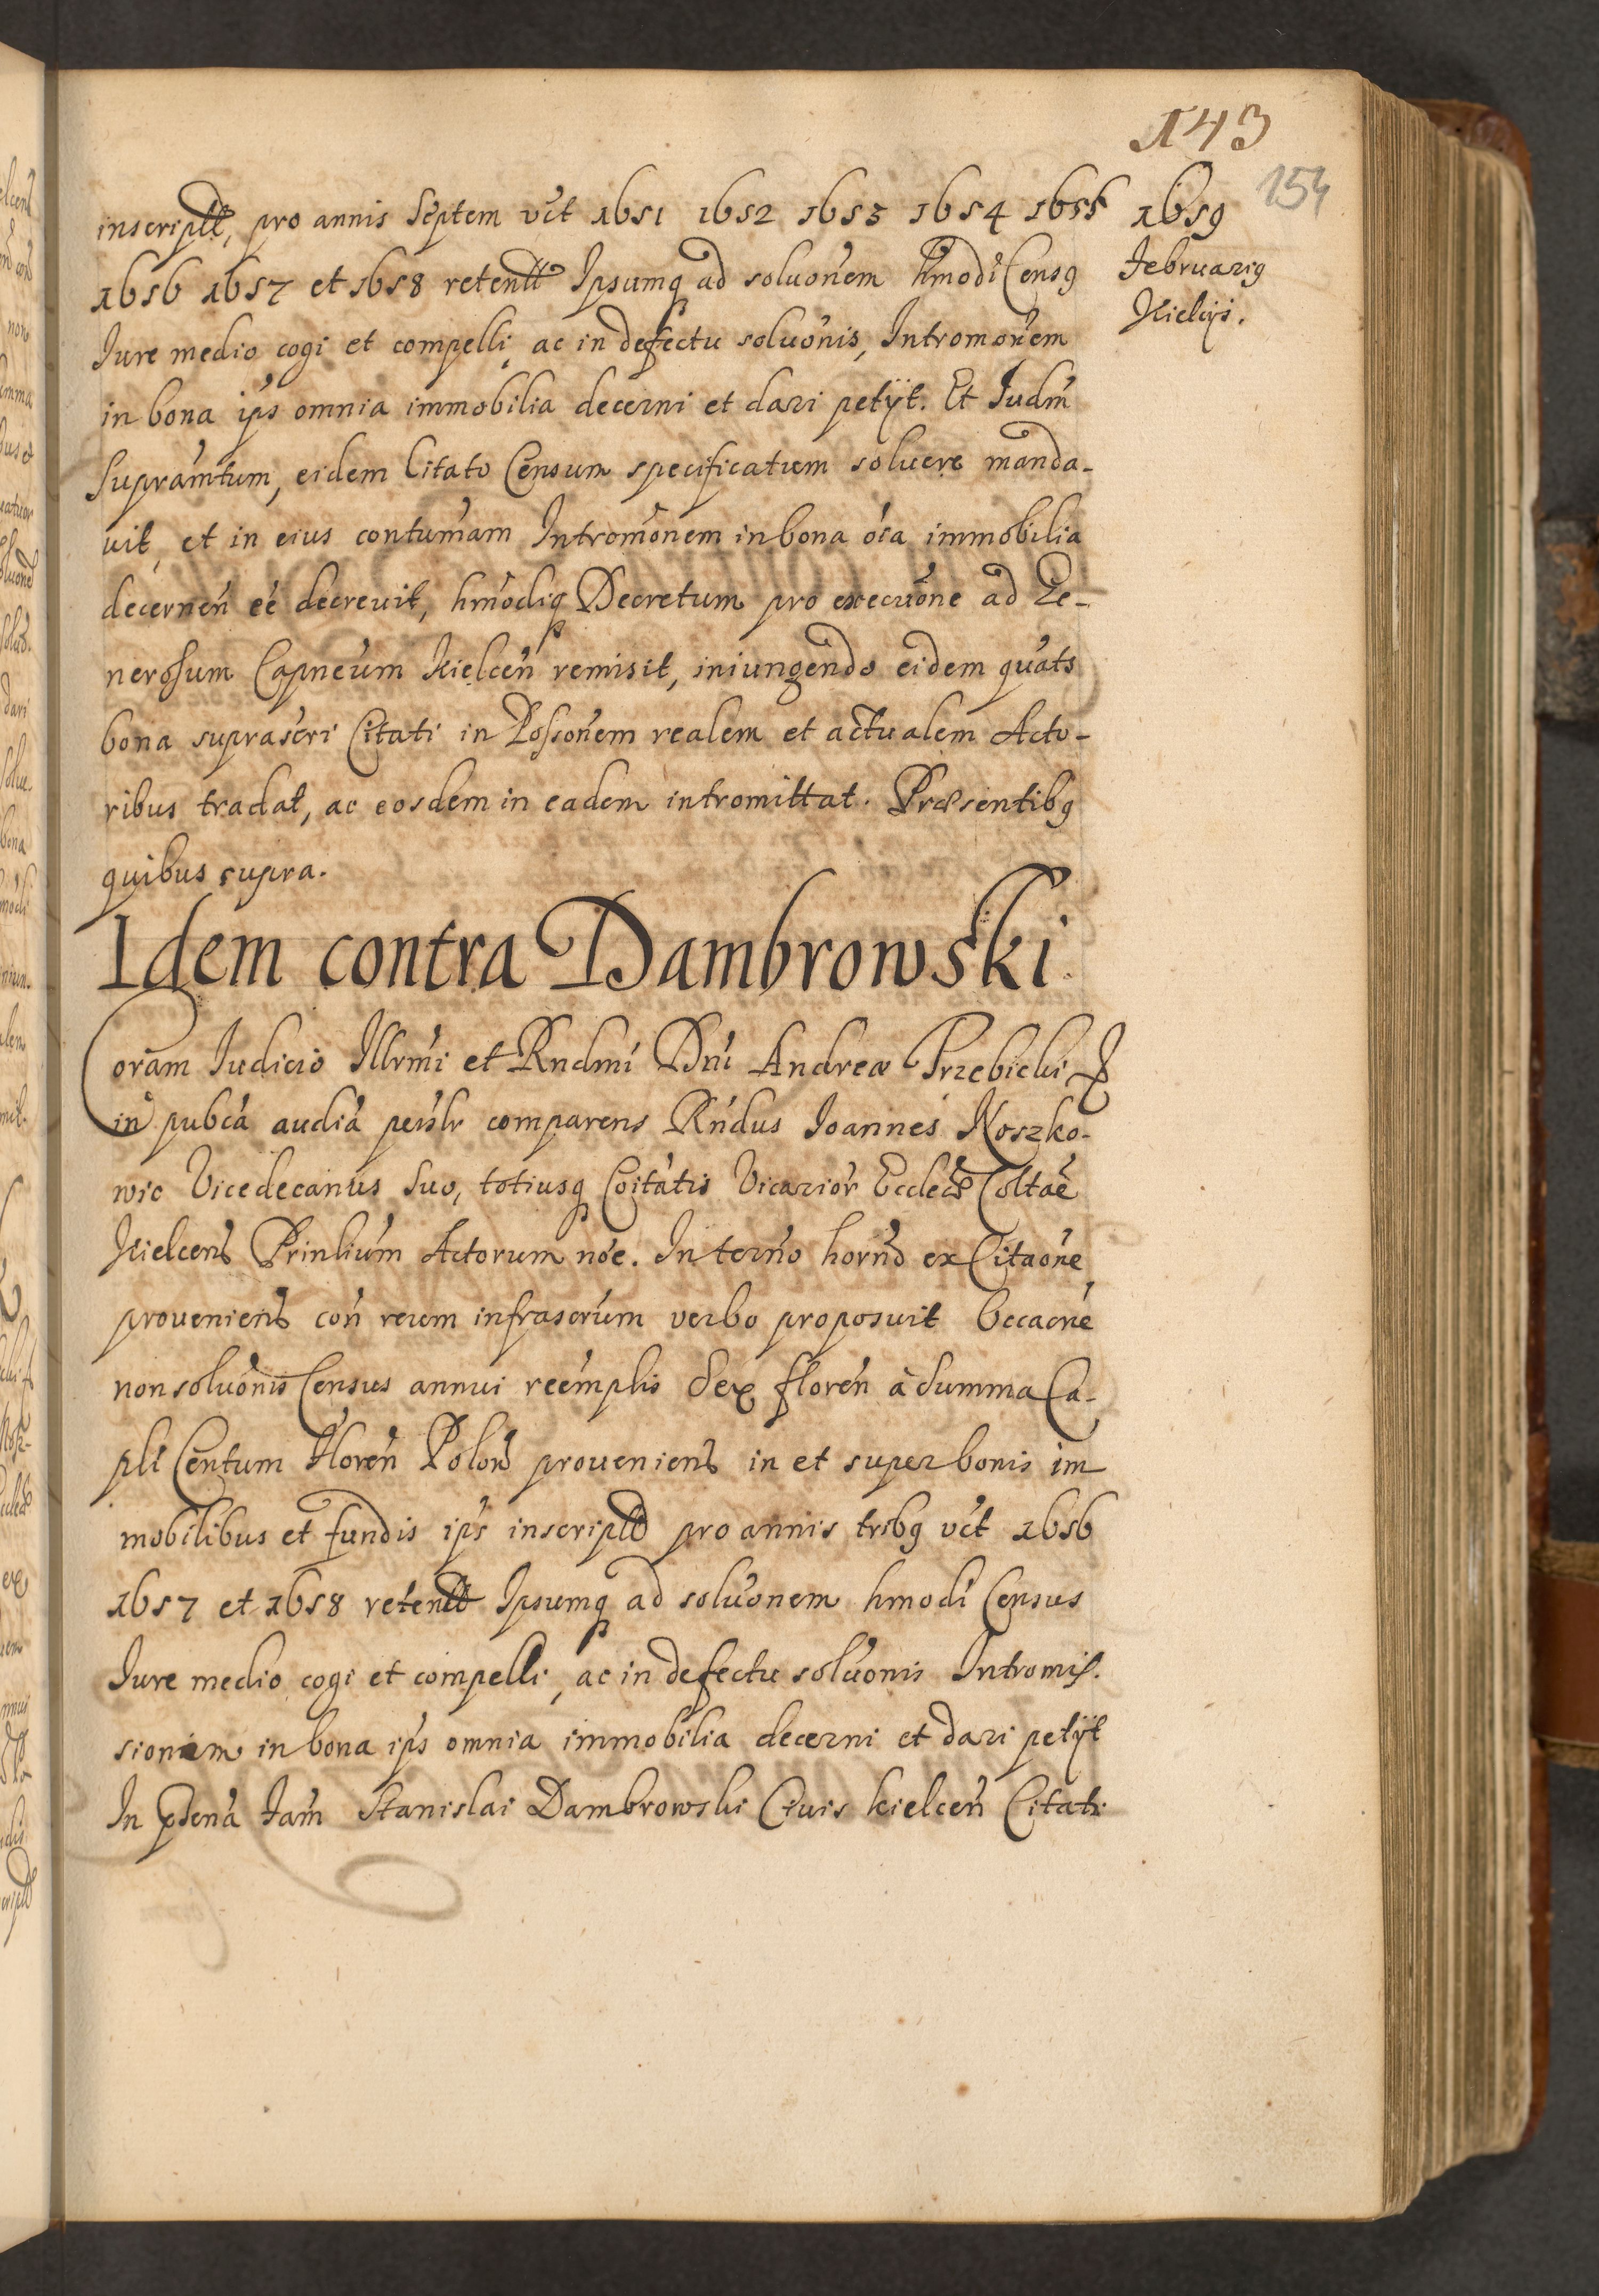 143
154
1659
Februarig
Kielcijs.
inscriptt, pro annis Septem vct 1651 1652 1653 1654 1655
1656 1657 et 1658 retentt Ipsumq ad soluonem hmodi Censg
Iure medio cogi et compelli, ac in defectu soluonis, Intromonem
in bona ips omnia immobilia decerni et dari petijt. Et Iudm
Supramtum, eidem Citato Censum specificatum soluere manda-
uit, et in eius contumam Intromonem in bona oia immobilia
decernen ee decreuit, hmodiq Decretum pro execuone ad Ge-
nerosum Capneum Kielcen remisit, iniungendo eidem quats
bona suprascri Citati in Possonem realem et actualem Acto-
ribus tradat, ac eosdem in eadem intromittat. Præsentibg
quibus supra.
Idem contra Dambrowski.
Coram Iudicio Illrmi et Rndmi Dni Andreæ Trzebicki
in pubca audia psnlr comparens Rndus Ioannes Noszko-
wic Vicedecanus Suo, totiusq Coitatis Vicarior Eccleæ Coltae
Kielcens Prinlium Actorum noe. In termo horno ex Citaone
proueniens con reum infrascrum verbo proposuit Occaone
non soluonis Census annui reemplis Sex floren à Summa Ca-
pli Centum Floren Polon proueniens in et super bonis im
mobilibus et fundis ips inscriptt pro annis tribg vct 1656
1657 et 1658 retentt Ipsumq ad soluonem hmodi Census
Iure medio cogi et compelli, ac in defectu soluonis Intromis-
sionem in bona ips omnia immobilia decerni et dari petijt
In psena Fam Stanislai Dambrowski Ciuis Kielcen Citati